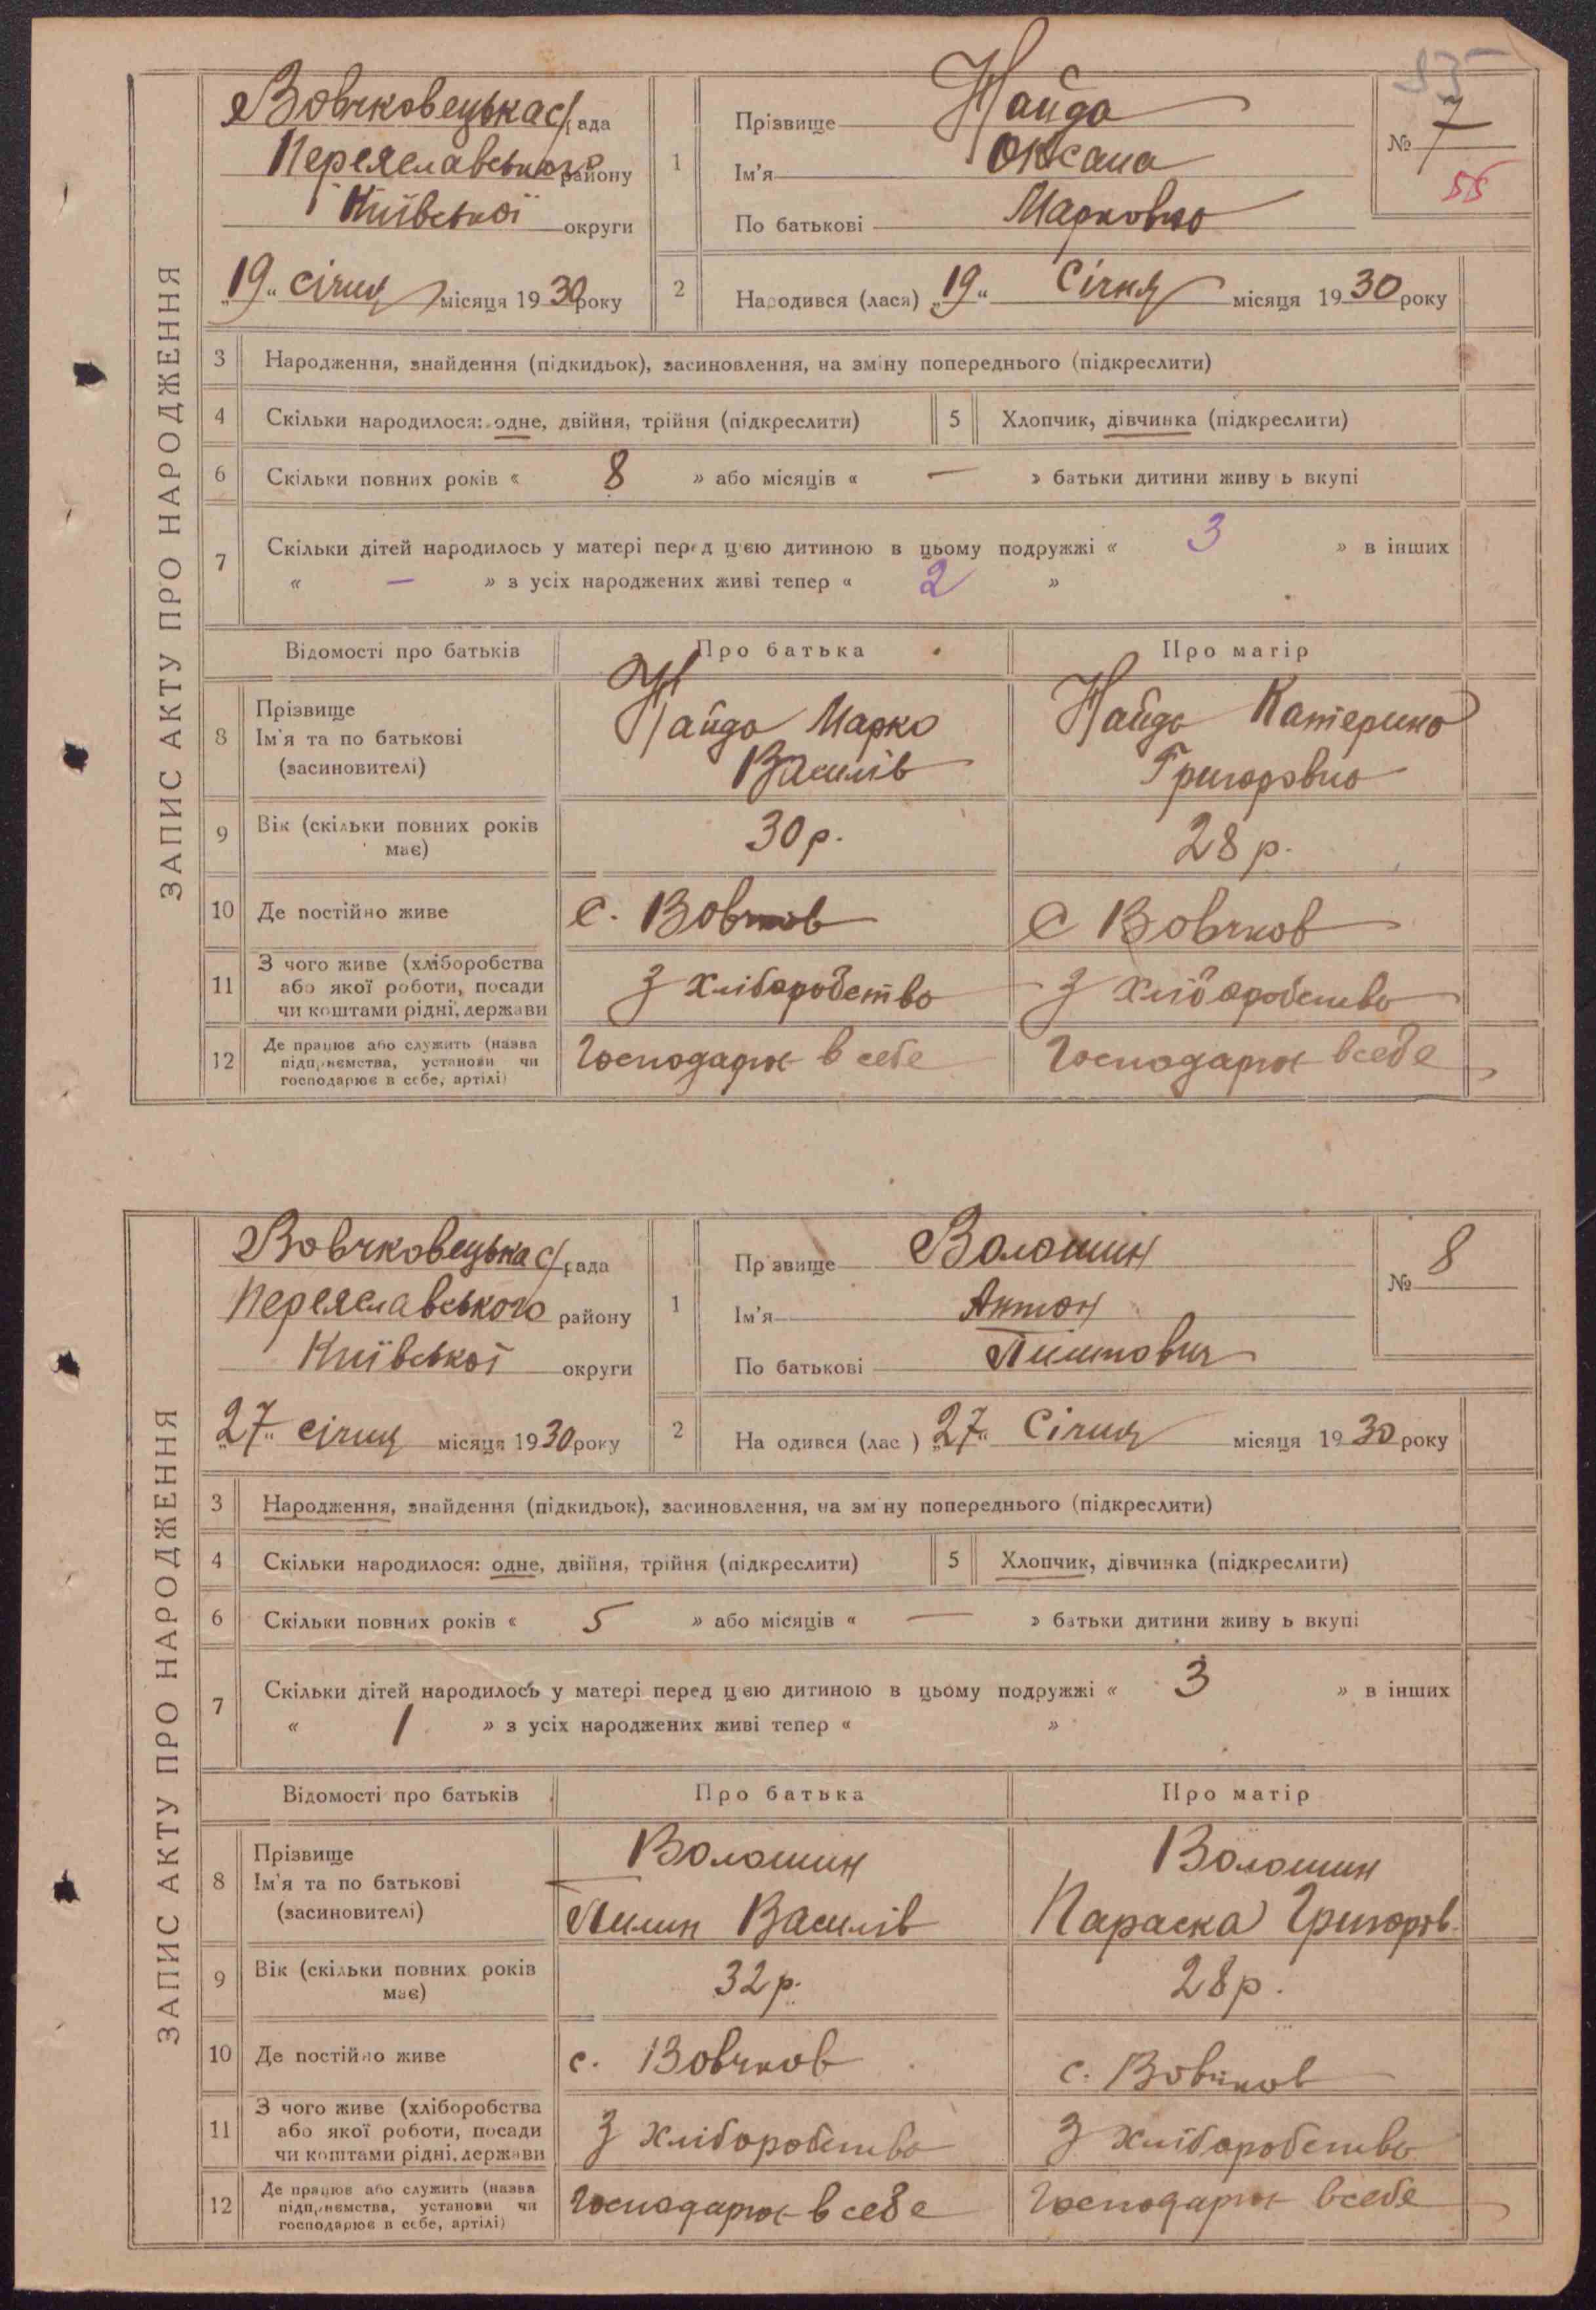 ЗАПИС АКТУ ПРО НАРОДЖЕННЯ
Вовчковецька с/рада
Переяславського району
Київської округи
„19“ січня місяця 1930 року
1 Прізвище Найда
Ім'я Оксана
По батькові Марковна
№ 7
55
2 Народився (лася) „19“ Січня місяця 1930 року
3 Народження, знайдення (підкидьок), засиновлення, на зміну попереднього (підкреслити)
4 Скільки народилося: одне, двійня, трійня (підкреслити) 5 Хлопчик, дівчинка (підкреслити)
6 Скільки повних років « 8 » або місяців « — » батьки дитини живу ь вкупі
7 Скільки дітей народилось у матері перед цією дитиною в цьому подружжі « 3 » в інших
« — » з усіх народжених живі тепер « 2 »
Відомості про батьків Про батька Про матір
8 Прізвище Ім'я та по батькові (засиновителі)
Найда Марко Василів
Найда Катерина Григоровна
9 Вік (скільки повних років має) 30 р. 28 р.
10 Де постійно живе с. Вовчков с Вовчков
11 З чого живе (хліборобства або якої роботи, посади чи коштами рідні, держави
З хліборобства З хліборобства
12 Де працює або служить (назва підприємства, установи чи господарює в себе, артілі)
Господарює в себе Господарює в себе
ЗАПИС АКТУ ПРО НАРОДЖЕННЯ
Вовчковецька с/рада
Переяславського району
Київської округи
„27“ січня місяця 1930 року
1 Пр звище Волошин
Ім'я Антон
По батькові
№ 8
2 На одився (лас ) „27“ Січня місяця 1930 року
3 Народження, знайдення (підкидьок), засиновлення, на зм ну попереднього (підкреслити)
4 Скільки народилося: одне, двійня, трійня (підкреслити) 5 Хлопчик, дівчинка (підкреслити)
6 Скільки повних років « 5 » або місяців « — » батьки дитини живу ь вкупі
7 Скільки дітей народилось у матері перед цією дитиною в цьому подружжі « 3 » в інших
« 1 » з усіх народжених живі тепер « »
Відомості про батьків Про батька Про матір
8 Прізвище Ім'я та по батькові (засиновителі)
Волошин
Василів
Волошин
Параска Григорів.
9 Вік (скільки повних років має) 32 р. 28 р.
10 Де постійно живе с. Вовчков с. Вовчков
11 З чого живе (хліборобства або якої роботи, посади чи коштами рідні, держави
З хліборобства З хліборобства
12 Де працює або служить (назва підприємства, установи чи господарює в себе, артілі)
Господарює в себе Господарює в себе